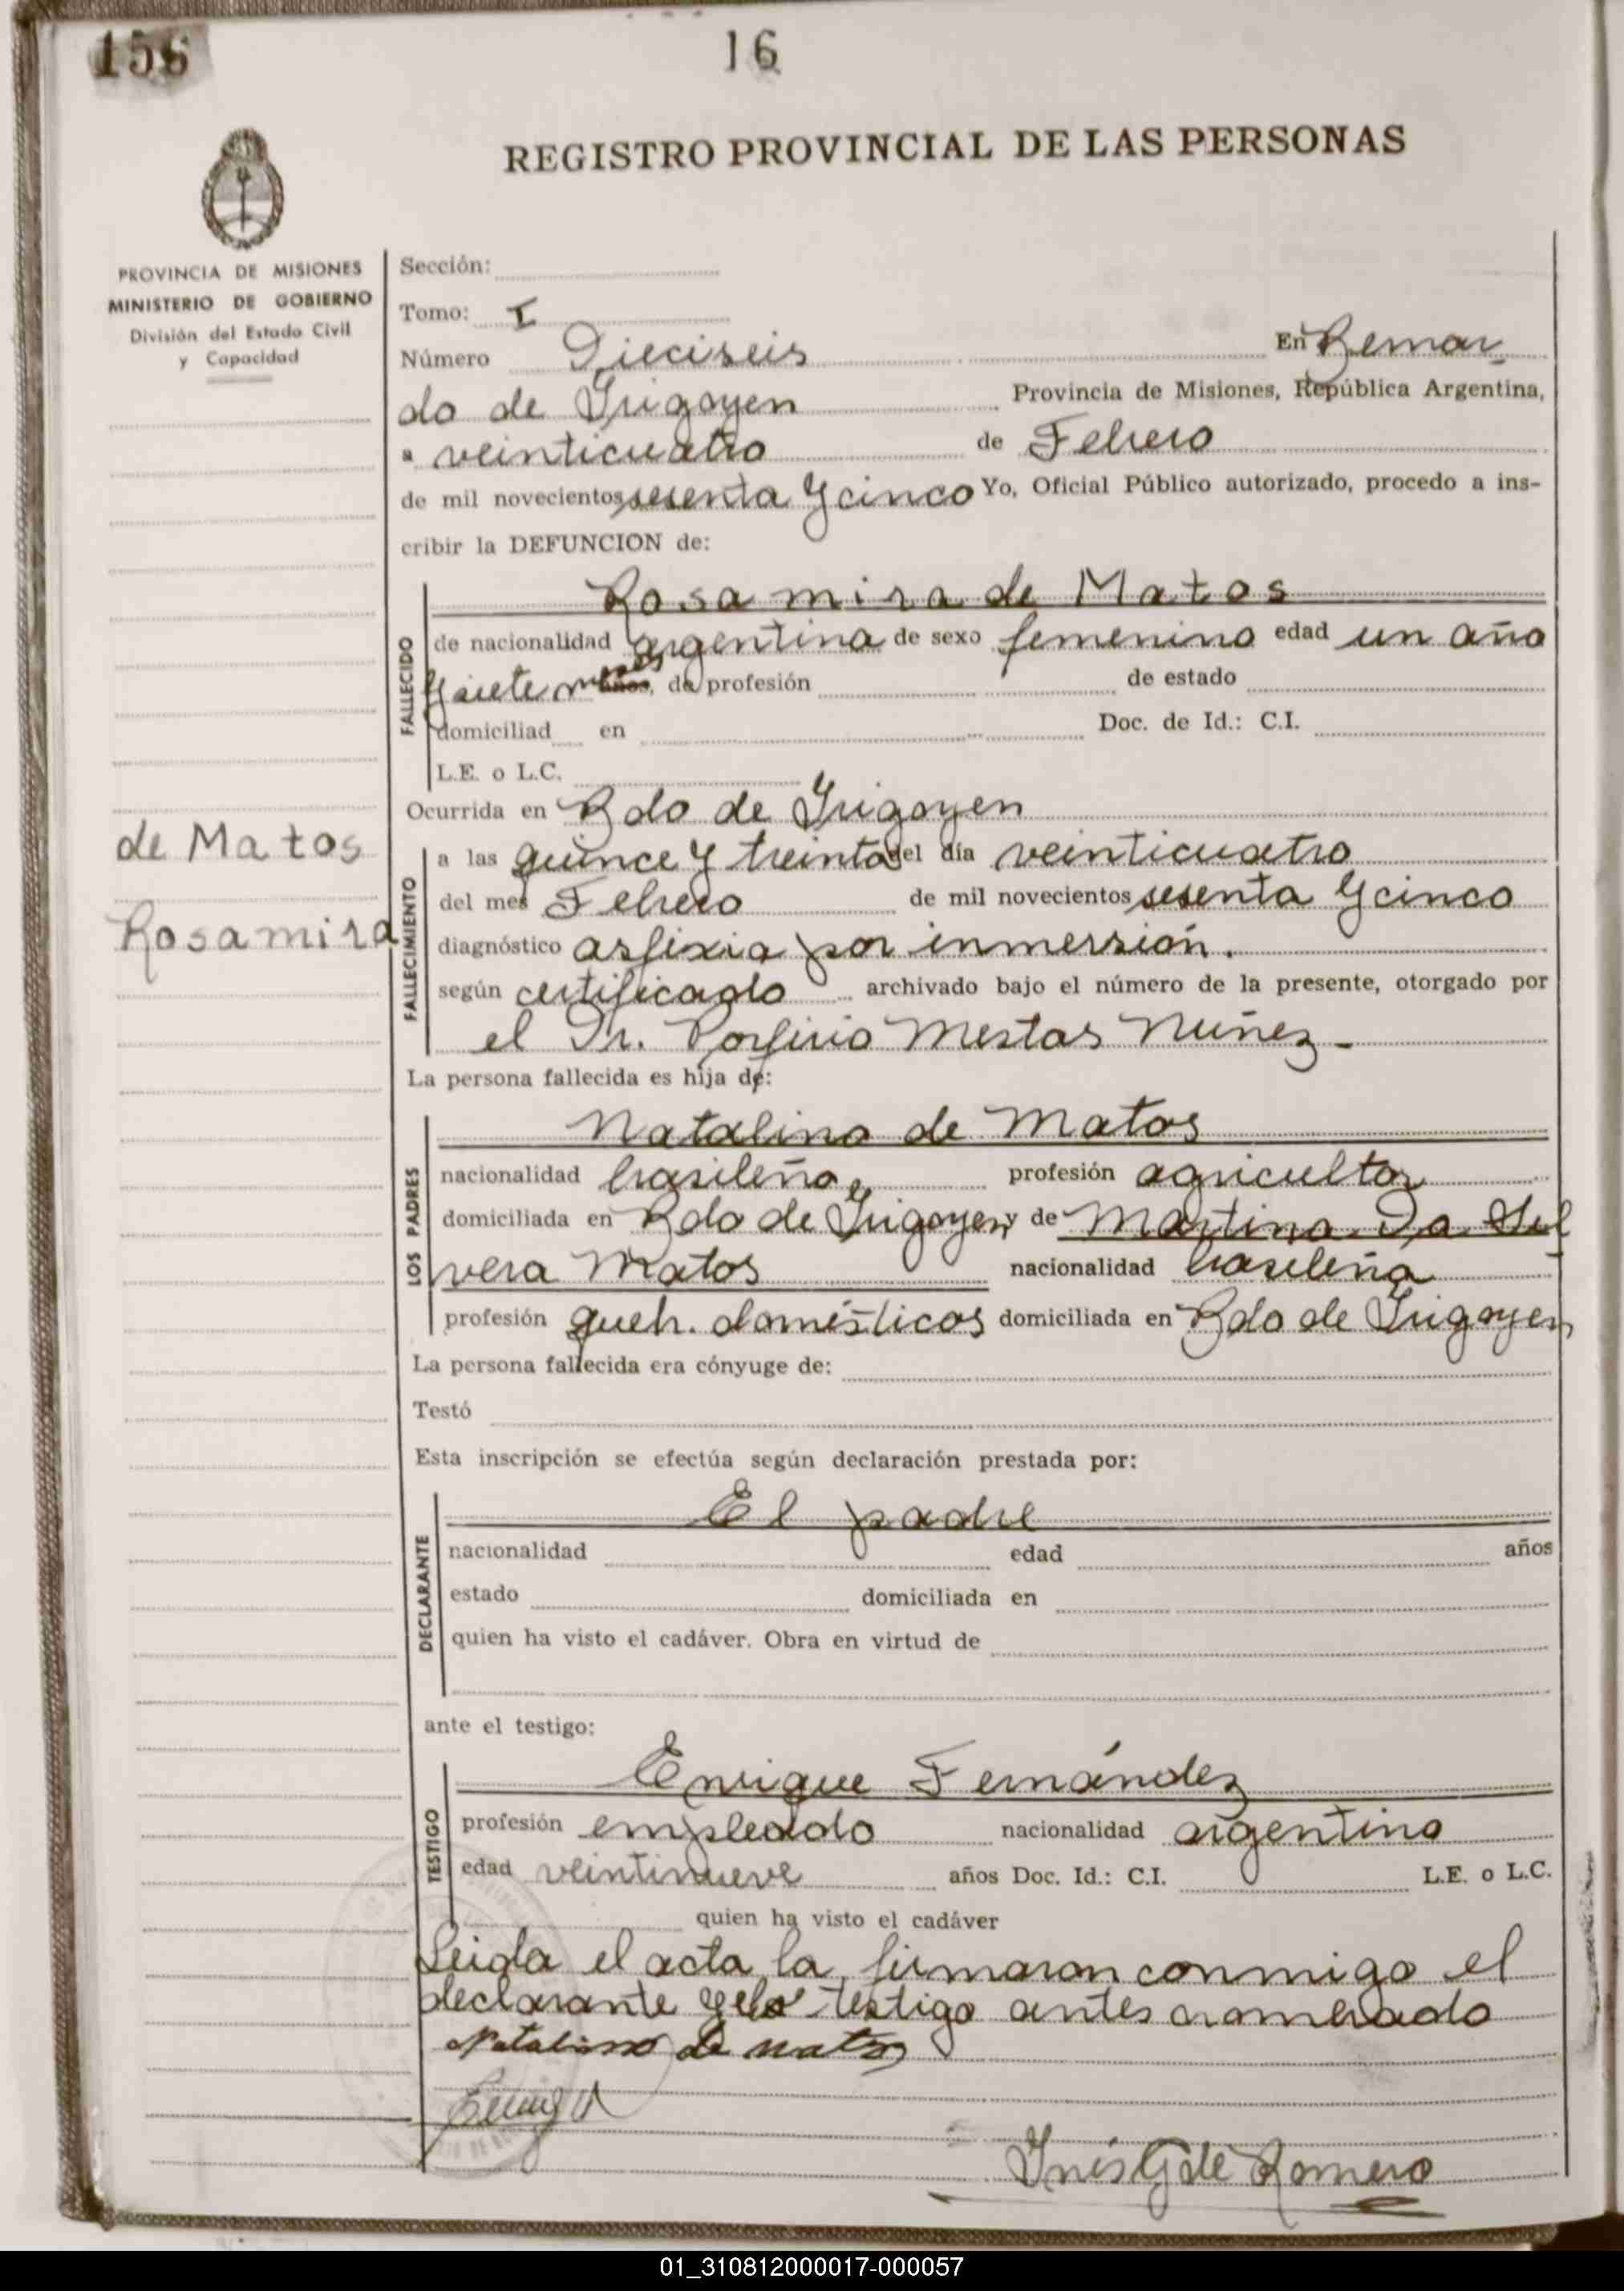 156
16
REGISTRO PROVINCIAL DE LAS PERSONAS
PROVINCIA DE MISIONES
MINISTERIO DE GOBIERNO
División del Estado Civil
y Capacidad
Sección:
Tomo: I
Número Dieciseis En Bernar
do de Irigoyen Provincia de Misiones, República Argentina,
a veinticuatro de Febrero
de mil novecientos sesenta y cinco Yo, Oficial Público autorizado, procedo a ins-
cribir la DEFUNCION de:
FALLECIDO
Rosamira de Matos
de nacionalidad argentina de sexo femenino edad un año
y siete meses años, de profesión de estado
domiciliad en Doc. de Id.: C.I.
L.E. o L.C.
Ocurrida en Bdo de Irigoyen
de Matos
Rosamira
FALLECIMIENTO
a las quince y treinta del día veinticuatro
del mes Febrero de mil novecientos sesenta y cinco
diagnóstico asfixia por inmersión.
según certificado archivado bajo el número de la presente, otorgado por
el Dr. Porfirio Mestas Nuñez
La persona fallecida es hija de:
LOS PADRES
Natalino de Matos
nacionalidad brasileña profesión agricultor
domiciliada en Bdo de Irigoyen y de Martina Da Sil
vera Matos nacionalidad brasileña
profesión queh. domésticos domiciliada en Bdo de Irigoyen
La persona fallecida era cónyuge de:
Testó
Esta inscripción se efectúa según declaración prestada por:
DECLARANTE
El padre
nacionalidad edad años
estado domiciliada en
quien ha visto el cadáver. Obra en virtud de
ante el testigo:
TESTIGO
Enrique Fernández
profesión empleado nacionalidad argentino
edad veintinueve años Doc. Id.: C.I. L.E. o L.C.
quien ha visto el cadáver
Leida el acta la firmaron conmigo el
declarante y el testigo antes nombrado
Natalino de Matos
Inés G de Romero
01_310812000017-000057